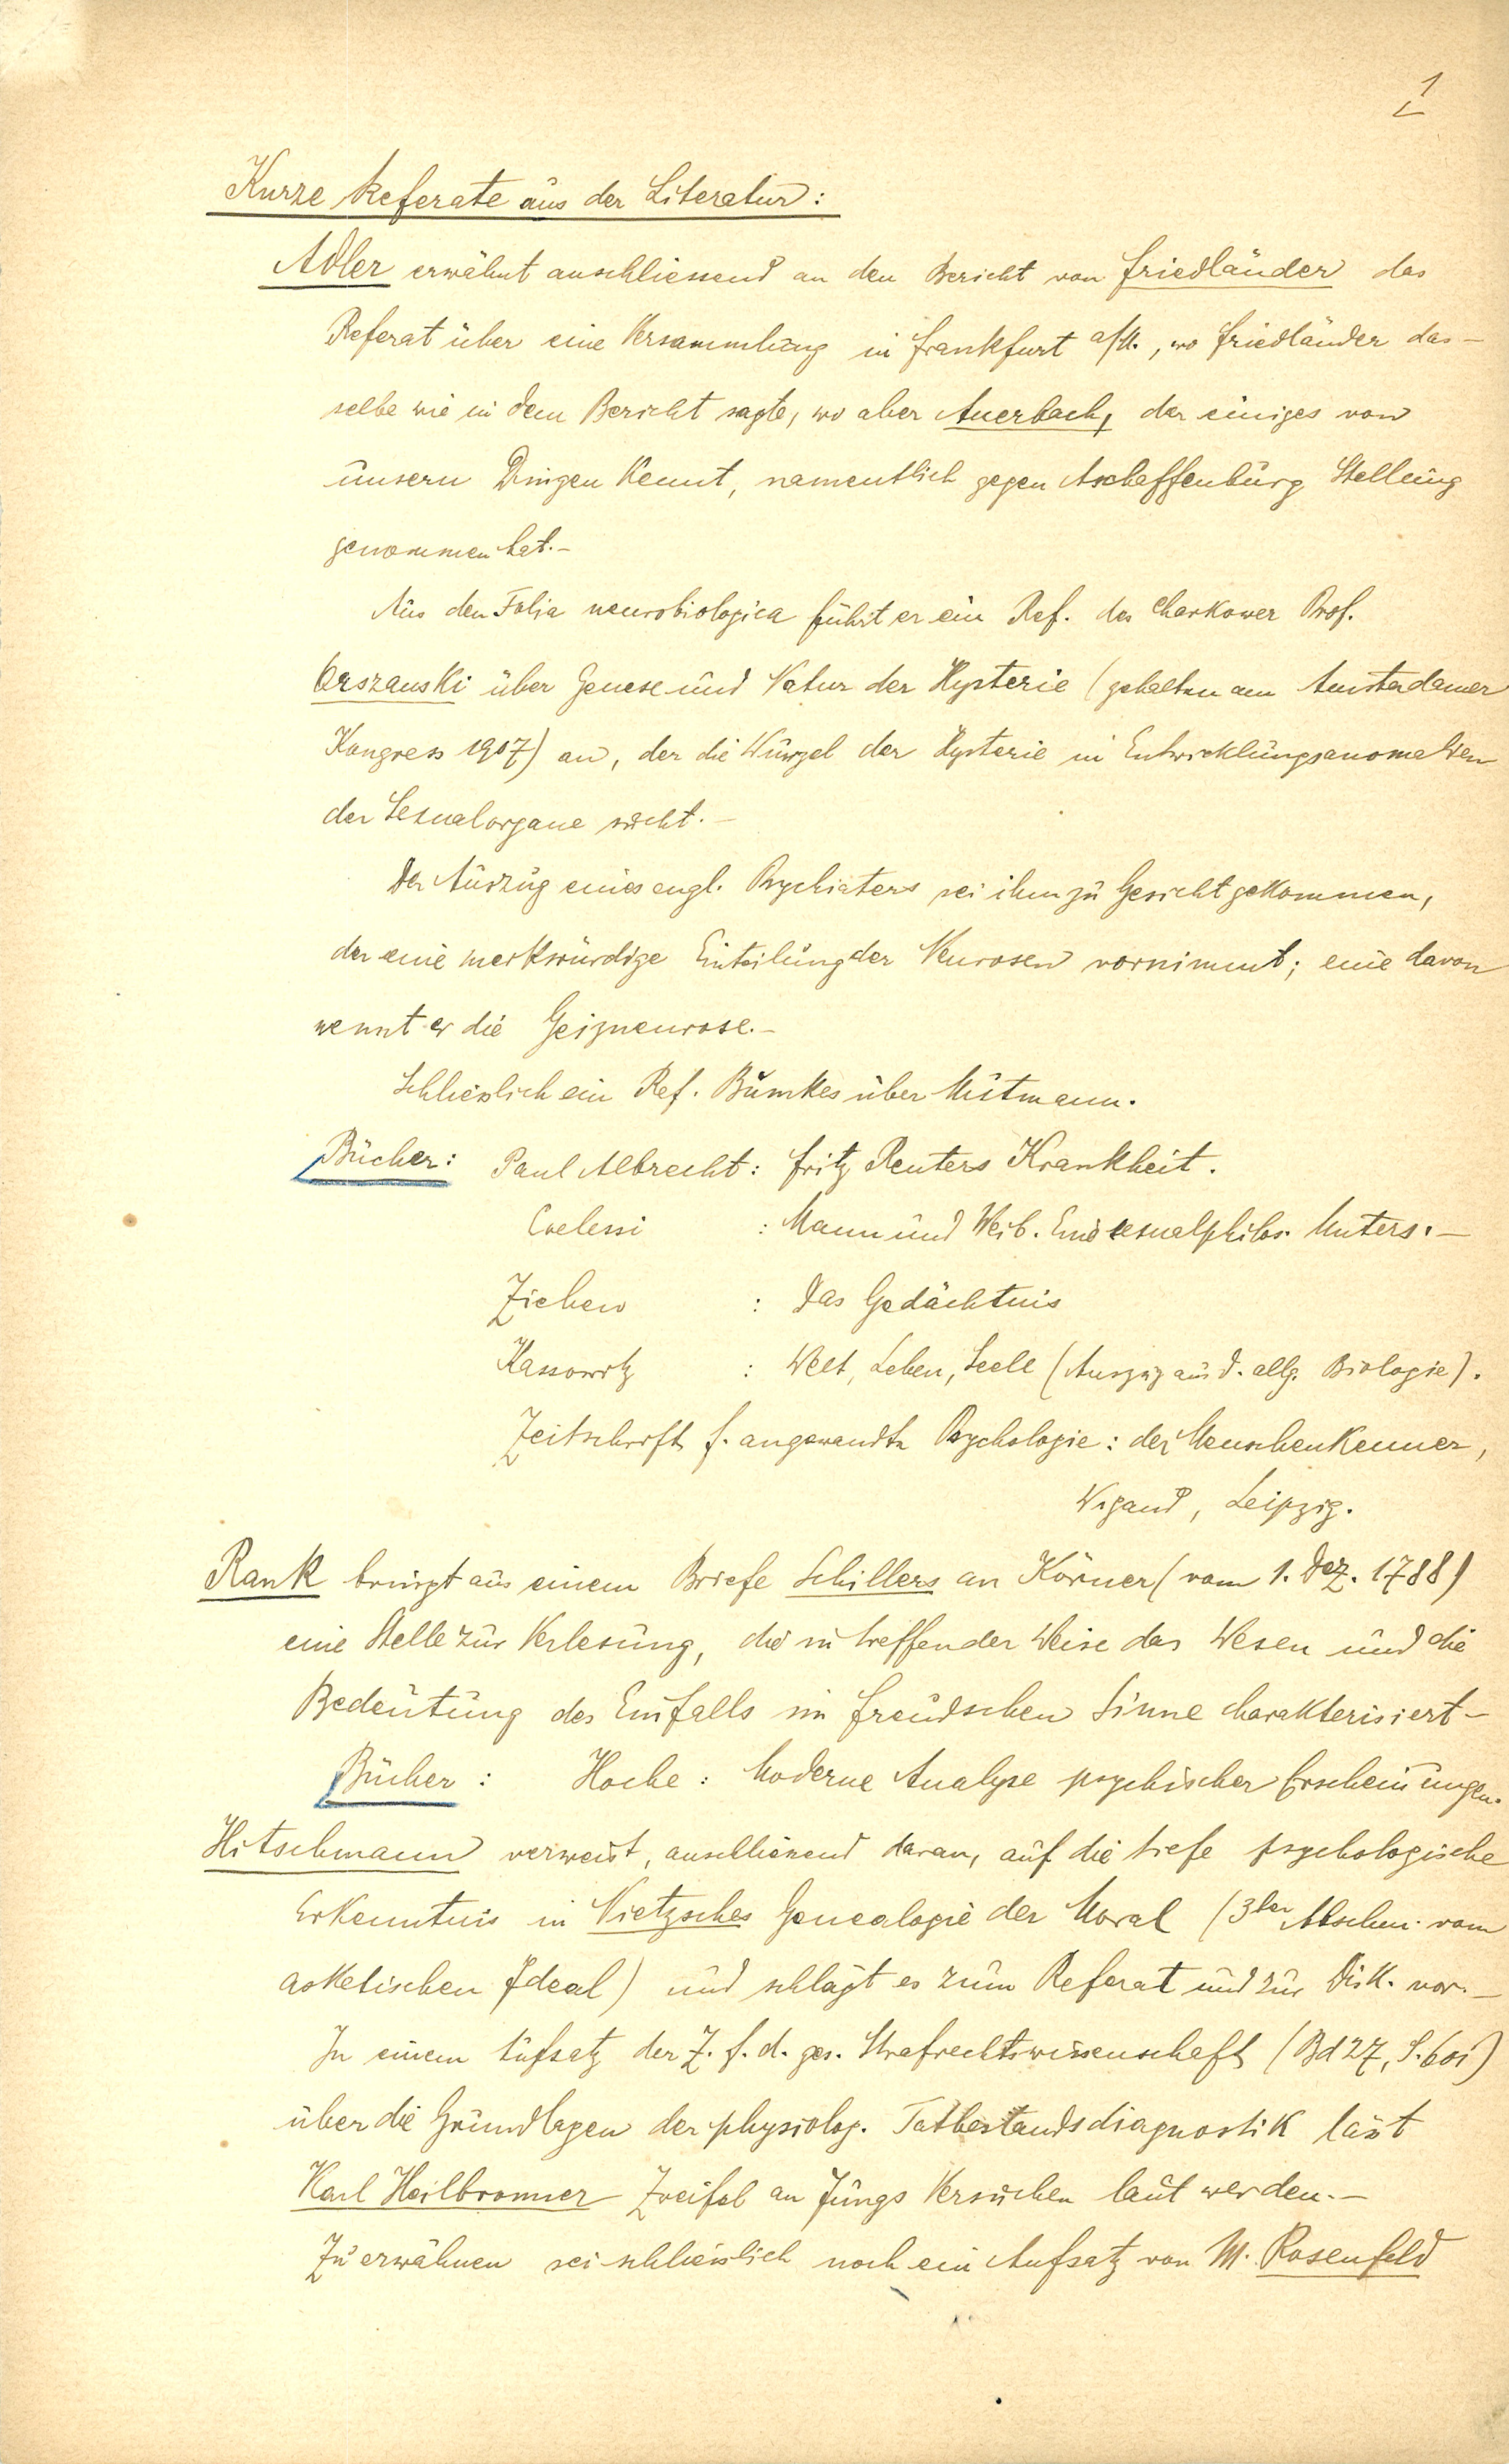 1
Kurze Referate aus der Literatur:
Adler erwähnt anschliessend an den Bericht von Friedländer das
Referat über eine Versammlung in Frankfurt a/M., wo Friedländer das-
selbe wie in dem Bericht sagte, wo aber Auerbach, der einiges von
unsern Dingen kennt, namentlich gegen Aschaffenburg Stellung
genommen hat.-
Aus den Folia neurobiologica führt er ein Ref. des Charkower Prof.
Orszanski über Genese und Natur der Hysterie (gehalten am Amsterdamer
Kongress 1907) an, der die Wurzel der Hysterie in Entwicklungsanomalien
der Sexualorgane sucht.-
Der Auszug eines engl. Psychiaters sei ihm zu Gesicht gekommen,
der eine merkwürdige Einteilung der Neurosen vornimmt; eine davon
nennt er die Geizneurose.-
Schliesslich ein Ref. Bumkes über Mutmann.
Bücher: Paul Albrecht: Fritz Reuters Krankheit.
: Mann und Weib. Eine sexualphilos. Unters.-
Ziehen : Das Gedächtnis
Kassowitz : Welt, Leben, Seele (Auszug aus d. allg. Biologie).
Zeitschrift f. angewandte Psychologie: der Menschenkenner,
Wigand, Leipzig.
Rank bringt aus einem Briefe Schillers an Körner (vom 1. Dez. 1788)
eine Stelle zur Verlesung, die in treffender Weise das Wesen und die
Bedeutung des Einfalls im Freudschen Sinne charakterisiert-
Bücher: Hoche: Moderne Analyse psychischer Erscheinungen.
Hitschmann verweist, anschliessend daran, auf die tiefe psychologische
Erkenntnis in Nietzsches Genealogie der Moral (3ter Abschn. vom
asketischen Ideal) und schlägt es zum Referat und zur Disk. vor.-
In einem Aufsatz der Z. f. d. ges. Strafrechtswissenschaft (Bd 27, S. 601)
über die Grundlagen der physiolog. Tatbestandsdiagnostik lässt
Karl Heilbronner Zweifel an Jungs Versuchen laut werden.-
Zu erwähnen sei schliesslich noch ein Aufsatz von M. Rosenfeld